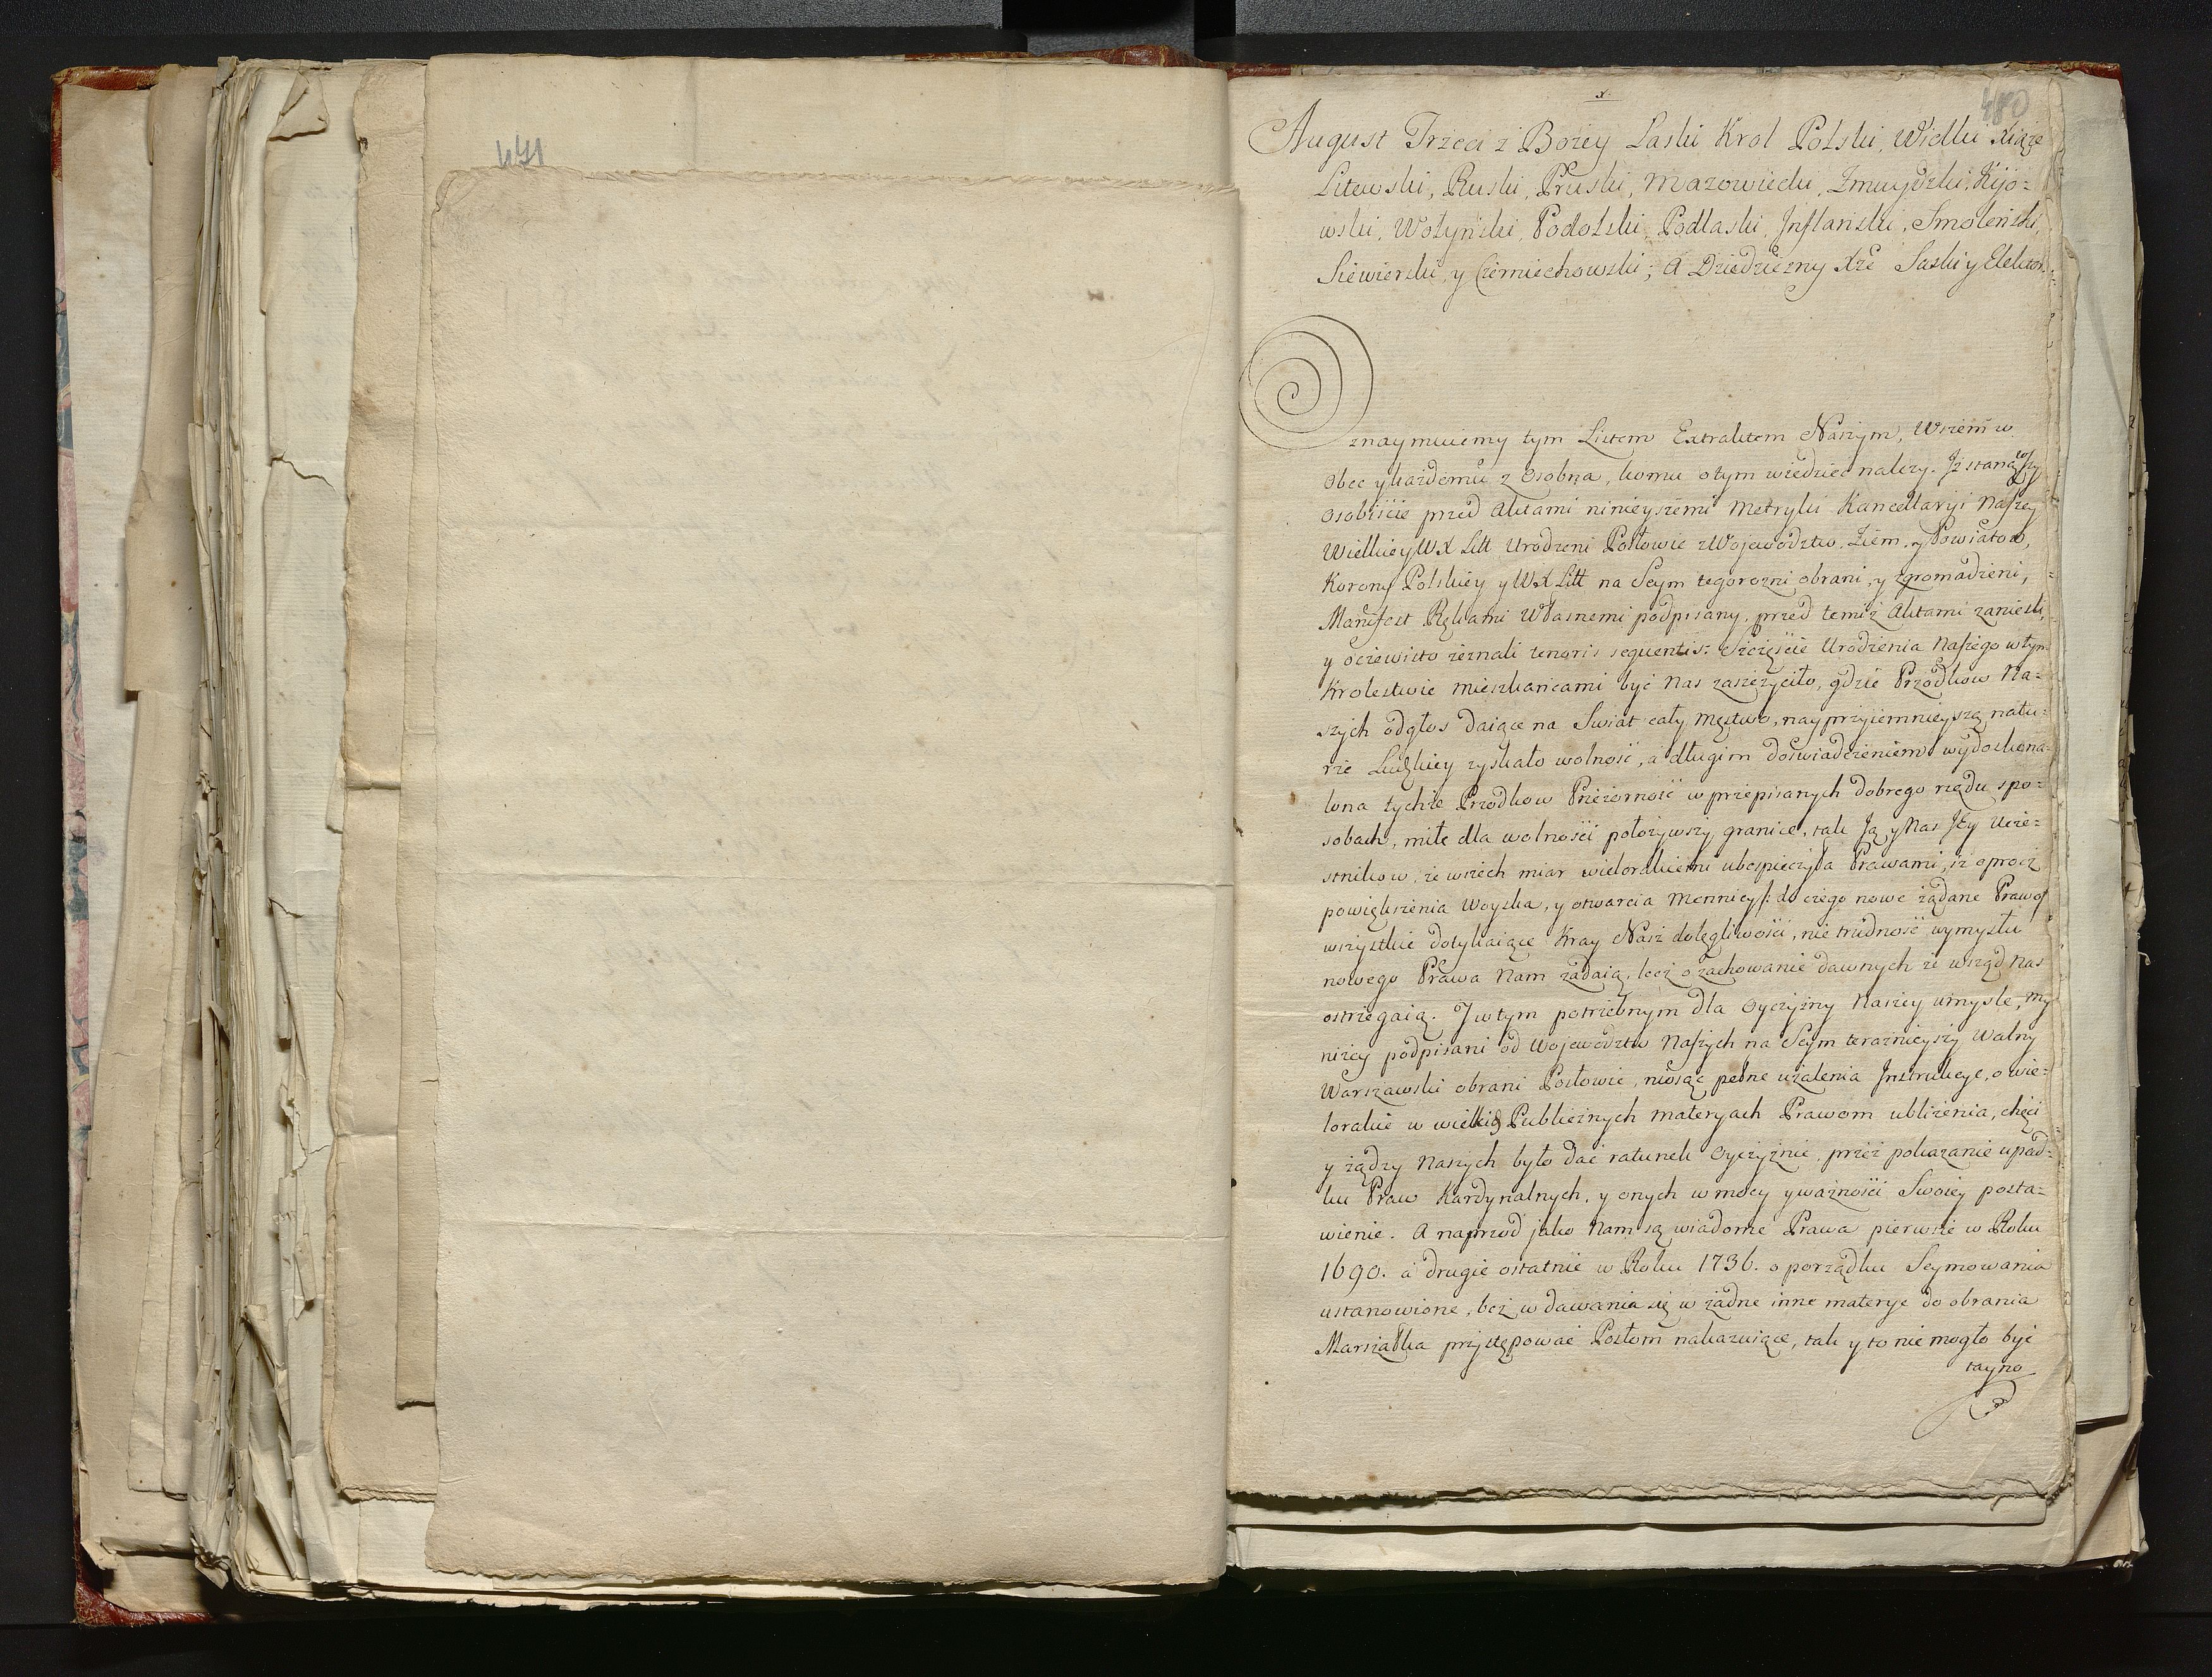 471
x
480
August Trzeci z Bożey Łaski Krol Polski, Wielki Xiąże
Litewski, Ruski, Pruski, Mazowiecki, Zmuydzki, Kijo=
wski, Wołyński, Podolski, Podlaski, Jnflantski, Smoleński,
Siewierski, y Czerniechowski; A Dziedziczny Xże Saski y Elektor.
Oznaymuiemy tym Listem Extraktem Naszym, Wszem w
Obec y każdemu z Osobna, komu otym wiedzieć nalezy. Jż stanąwszy
Osobiście przed Aktami ninieyszemi Metryki Kancellaryi Naszey
Wielkiey W X Litt Urodzeni Posłowie z Wojewodztw, Ziem, y Powiatow,
Korony Polskiey y W X Litt na Seym tegorozni obrani, y zgromadzeni,
Manifest Rękami Własnemi podpisany, przed temiż Aktami zanieśli,
y oczewisto zeznali tenoris sequentis: Szczęście Urodzenia Naszego w tym
Krolestwie Mieszkańcami być Nas zaszczyciło, gdzie Przodkow Na=
szych odgłos daiące na Swiat cały Męstwo, nayprzyiemnieyszą natu=
rze Ludzkiey zyskało wolność, a długim doświadczeniem wydoskona=
lona tychże Przodkow Przezorność w przepisanych dobrego rządu spo=
sobach, miłe dla wolności położywszy granice, tak Ją y Nas Jey Ucze=
stnikow, ze wszech miar wielorakiemi ubespieczyła Prawami, iż oprocz
powiększenia Woyska, y otwarcia Mennicy /: do czego nowe żądane Prawo /
wszystkie dotykaiące Kray Nasz dolęgliwości, nie trudność wymysłu
nowego Prawa Nam zadaią, lecz o zachowanie dawnych ze wsząd Nas
ostrzegaią. J w tym potrzebnym dla Oyczyzny Naszey umysle, My
niżey podpisani od Wojewodztw Naszych na Seym teraznieyszy Walny
Warszawski obrani Posłowie, niosąc pełne użalenia Jnstrukcye, o wie=
lorakie w wielkich Publicznych materyach Prawom ubliżenia, chęci
y żądzy Naszych było dać ratunek Oyczyznie, przez pokazanie upad=
ku Praw Kardynalnych, y onych w mocy y ważności Swoiey posta=
wienie. A naprzod jako Nam są wiadome Prawa pierwsze w Roku
1690. a drugie ostatnie w Roku 1736. o porządku Seymowania
ustanowione, bez wdawania się w żadne inne materye do obrania
Marszałka przystępować Posłom nakazuiące, tak y to nie mogło być
tayno